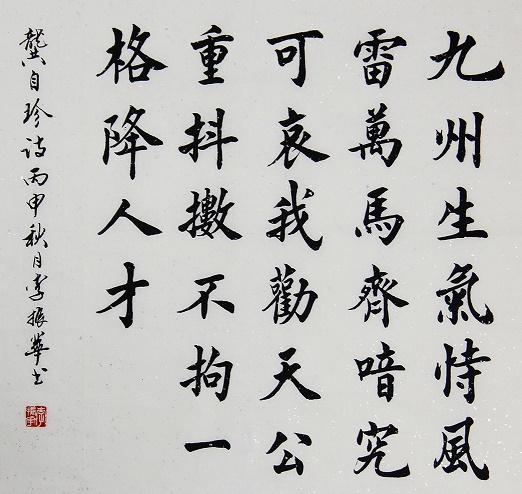 九州生氣恃風
雷萬馬齊喑究
可哀我勸天公
重抖擻不拘一
格降人才
龔自珍诗丙申秋月李振華书